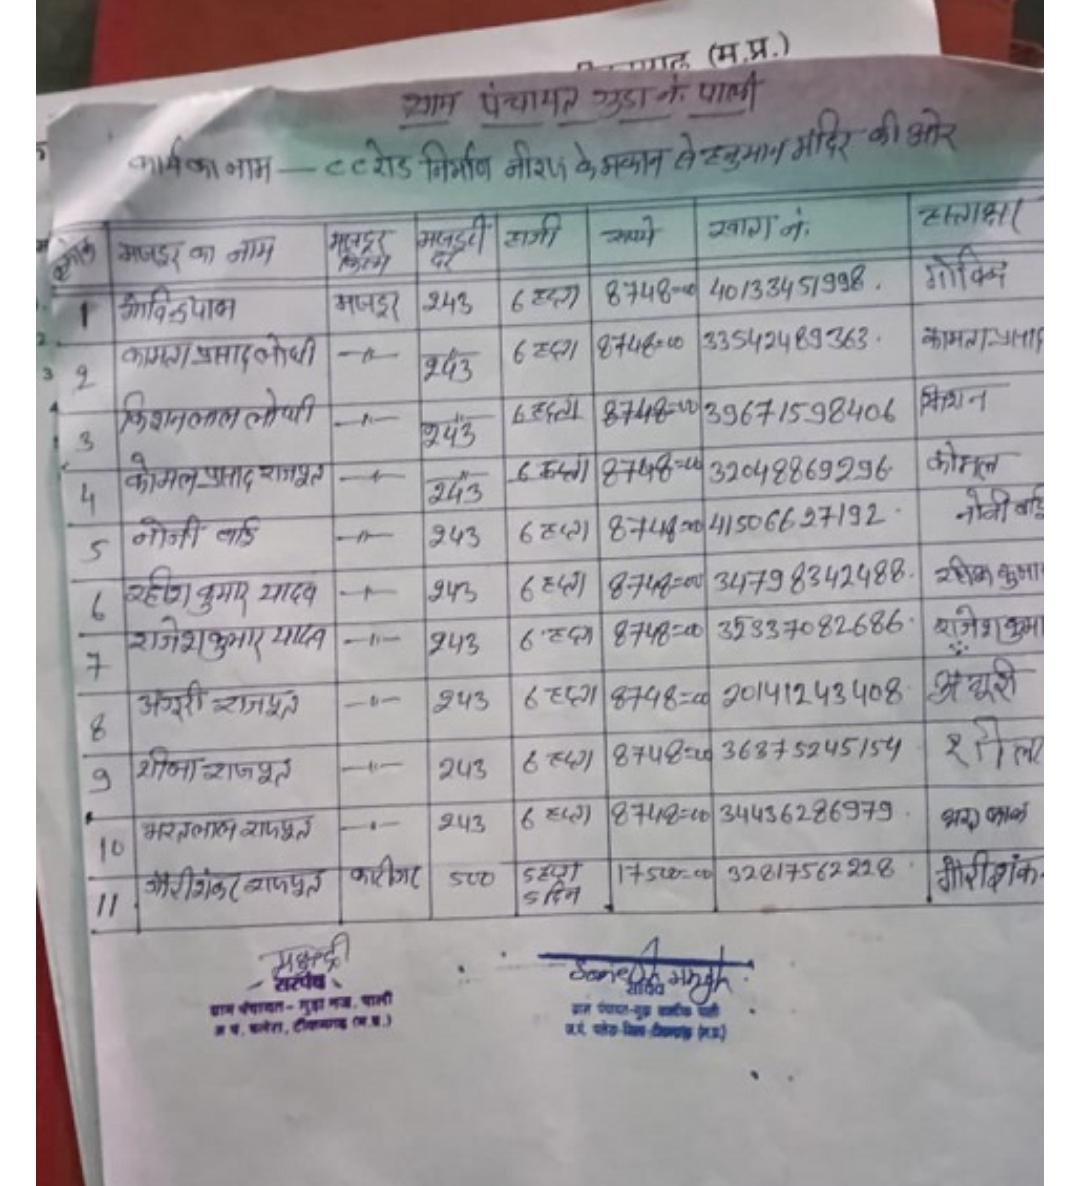 (म.प्र.)
ग्राम पंचायत गुडा नं. पाली
कार्य का नाम — CC रोड निर्माण नीरज के मकान से हनुमान मंदिर की ओर
मजदूर का नाम मजदूर किस्म मजदूरी दर हाजरी रूपये खाता नं. हस्ताक्षर
1 गोविन्द पाल मजदूर 243 6 हफ्ता 8748=00 40133451998. गोविन्द
2 कामता प्रसाद लोधी —"— 243 6 हफ्ता 8748=00 33542489363. कामता प्रसाद
3 किशनलाल लोधी —"— 243 6 हफ्ता 8748=00 39671598406 किशन
4 कोमल प्रसाद राजपूत —"— 243 6 हफ्ता 8748=00 32048869296. कोमल
5 नोनी बाई —"— 243 6 हफ्ता 8748=00 41506627192. नोनी बाई
6 रहीश कुमार यादव —"— 243 6 हफ्ता 8748=00 34798342488. रहीश कुमा
7 राजेश कुमार यादव —"— 243 6 हफ्ता 8748=00 35337082686. राजेश कुमा
8 अंगूरी राजपूत —"— 243 6 हफ्ता 8748=00 20141243408
9 राजपूत —"— 243 6 हफ्ता 8748=00 36375245154
10 भरतलाल राजपूत —"— 243 6 हफ्ता 8748=00 34436286979.
11 गौरीशंकर राजपूत कारीगर 500 5 हफ्ता 5 दिन 17500=00 32817562228. गौरीशंक
सरपंच
सचिव
ग्राम पंचायत- गुड़ा नज. पाली
ग्राम पंचायत-गुड़ा पाली
ज.पं. पलेरा, टीकमगढ़ (म.प्र.)
ज.पं. पलेरा-जिला-टीकमगढ़ (म.प्र.)